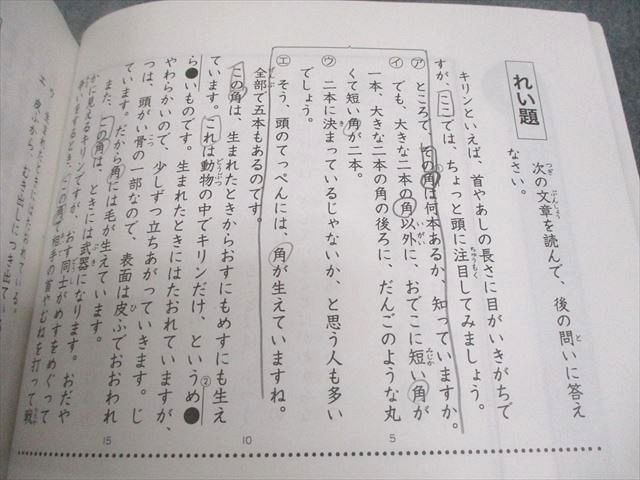 れい題
次の文章を読んで、後の問いに答え
なさい。
キリンといえば、首やあしの長さに目がいきがちで
すが、ここでは、ちょっと頭に注目してみましょう。
㋐ ところで、その角は何本あるか、知っていますか。
㋑ でも、大きな二本の角以外に、おでこに短い角が
一本、大きな二本の角の後ろに、だんごのような丸
くて短い角が二本。
㋒ 二本に決まっているじゃないか、と思う人も多い
でしょう。
㋓ そう、頭のてっぺんには、角が生えていますね。
全部で五本もあるのです。
この角は、生まれたときからおすにもめすにも生え
ています。これは動物の中でキリンだけ、というめ●
ら●いものです。生まれたときにはたおれていますが、
やわらかいので、少しずつ立ちあがっていきます。じ
つは、頭がい骨の一部なので、表面は皮ふでおおわれ
ています。だから角には毛が生えています。
また、この角は、ときには武器になります。おだや
かに見えるキリンですが、おす同士がめすをめぐって
争いをするとき、この角で相手の首やむねを打って戦
①
②
5
10
15